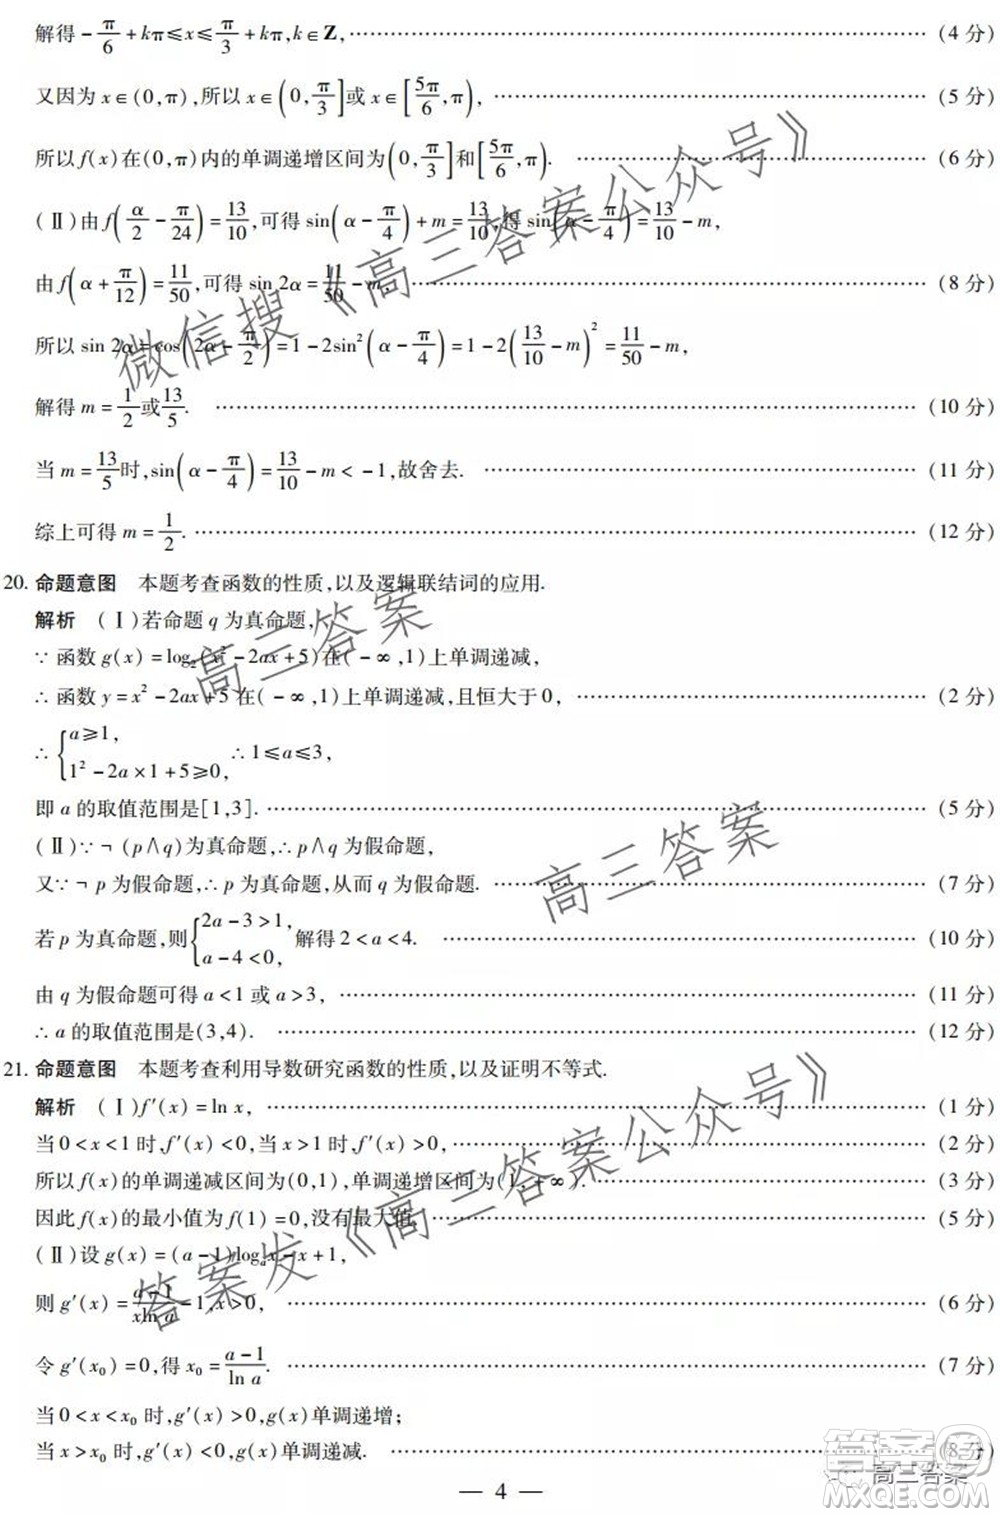 解得-π/6+kπ≤x≤π/3+kπ,k∈Z,……(4分)
又因为x∈(0,π),所以x∈(0,π/3]或x∈[5π/6,π),……(5分)
所以f(x)在(0,π)内的单调递增区间为(0,π/3]和[5π/6,π).……(6分)
(Ⅱ)由f(α/2-π/24)=13/10,可得sin(α-π/4)+m=13/10,得sin(α-π/4)=13/10-m,
由f(α+π/12)=11/50,可得sin 2α=11/50-m,……(8分)
所以sin 2α=cos(2α-π/2)=1-2sin²(α-π/4)=1-2(13/10-m)²=11/50-m,
解得m=1/2或13/5.……(10分)
当m=13/5时,sin(α-π/4)=13/10-m<-1,故舍去.……(11分)
综上可得m=1/2.……(12分)
20. 命题意图 本题考查函数的性质,以及逻辑联结词的应用.
解析 (Ⅰ)若命题q为真命题,
∵函数g(x)=log₂(x²-2ax+5)在(-∞,1)上单调递减,
∴函数y=x²-2ax+5在(-∞,1)上单调递减,且恒大于0,……(2分)
∴{a≥1, 1²-2a×1+5≥0, ∴1≤a≤3,
即a的取值范围是[1,3].……(5分)
(Ⅱ)∵¬(p∧q)为真命题,∴p∧q为假命题,
又∵¬p为假命题,∴p为真命题,从而q为假命题.……(7分)
若p为真命题,则{2a-3>1, a-4<0, 解得2<a<4.……(10分)
由q为假命题可得a<1或a>3,……(11分)
∴a的取值范围是(3,4).……(12分)
21. 命题意图 本题考查利用导数研究函数的性质,以及证明不等式.
解析 (Ⅰ)f′(x)=ln x,……(1分)
当0<x<1时,f′(x)<0,当x>1时,f′(x)>0,……(2分)
所以f(x)的单调递减区间为(0,1),单调递增区间为(1,+∞).……(3分)
因此f(x)的最小值为f(1)=0,没有最大值.……(5分)
(Ⅱ)设g(x)=(a-1)logₐx-x+1,
则g′(x)=(a-1)/(xln a)-1,x>0,……(6分)
令g′(x₀)=0,得x₀=(a-1)/ln a.……(7分)
当0<x<x₀时,g′(x)>0,g(x)单调递增;
当x>x₀时,g′(x)<0,g(x)单调递减.……(8分)
— 4 —
微信搜《高三答案公众号》
高三答案
高三答案
答案发《高三答案公众号》
高三答案
答案圈
MXQE.COM